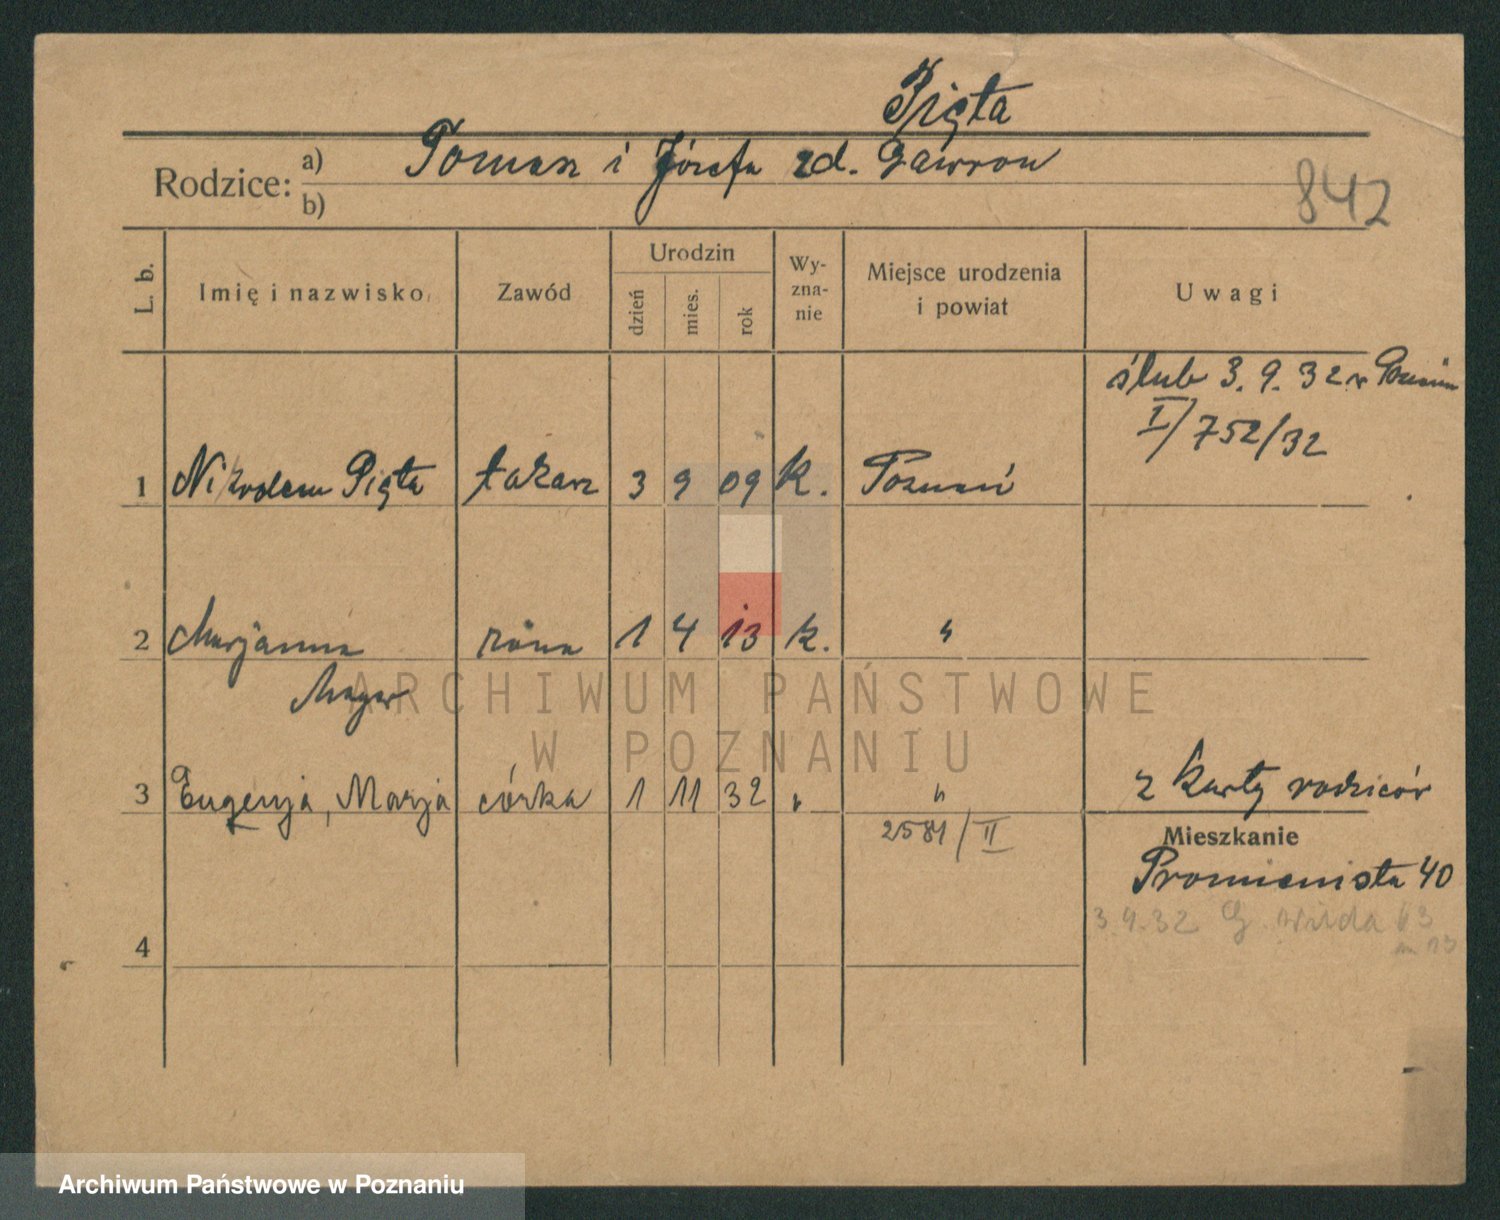 Pięta
Rodzice: a) Tomasz i Józefa zd. Gawron
b)
842
L. b.
Imię i nazwisko
Zawód
Urodzin
dzień
mies.
rok
Wy-
zna-
nie
Miejsce urodzenia
i powiat
Uwagi
ślub 3.9.32 w Poznaniu
I/752/32
1 Nikodem Pięta 3 9 09 k. Poznań
2 Marjanna żona 1 4 13 k. "
Mayer
ARCHIWUM PAŃSTWOWE
W POZNANIU
3 Eugenja, Marja córka 1 11 32 " " z karty rodziców
2581/II
Mieszkanie
Promienista 40
3.9.32 G. Wilda
4
Archiwum Państwowe w Poznaniu